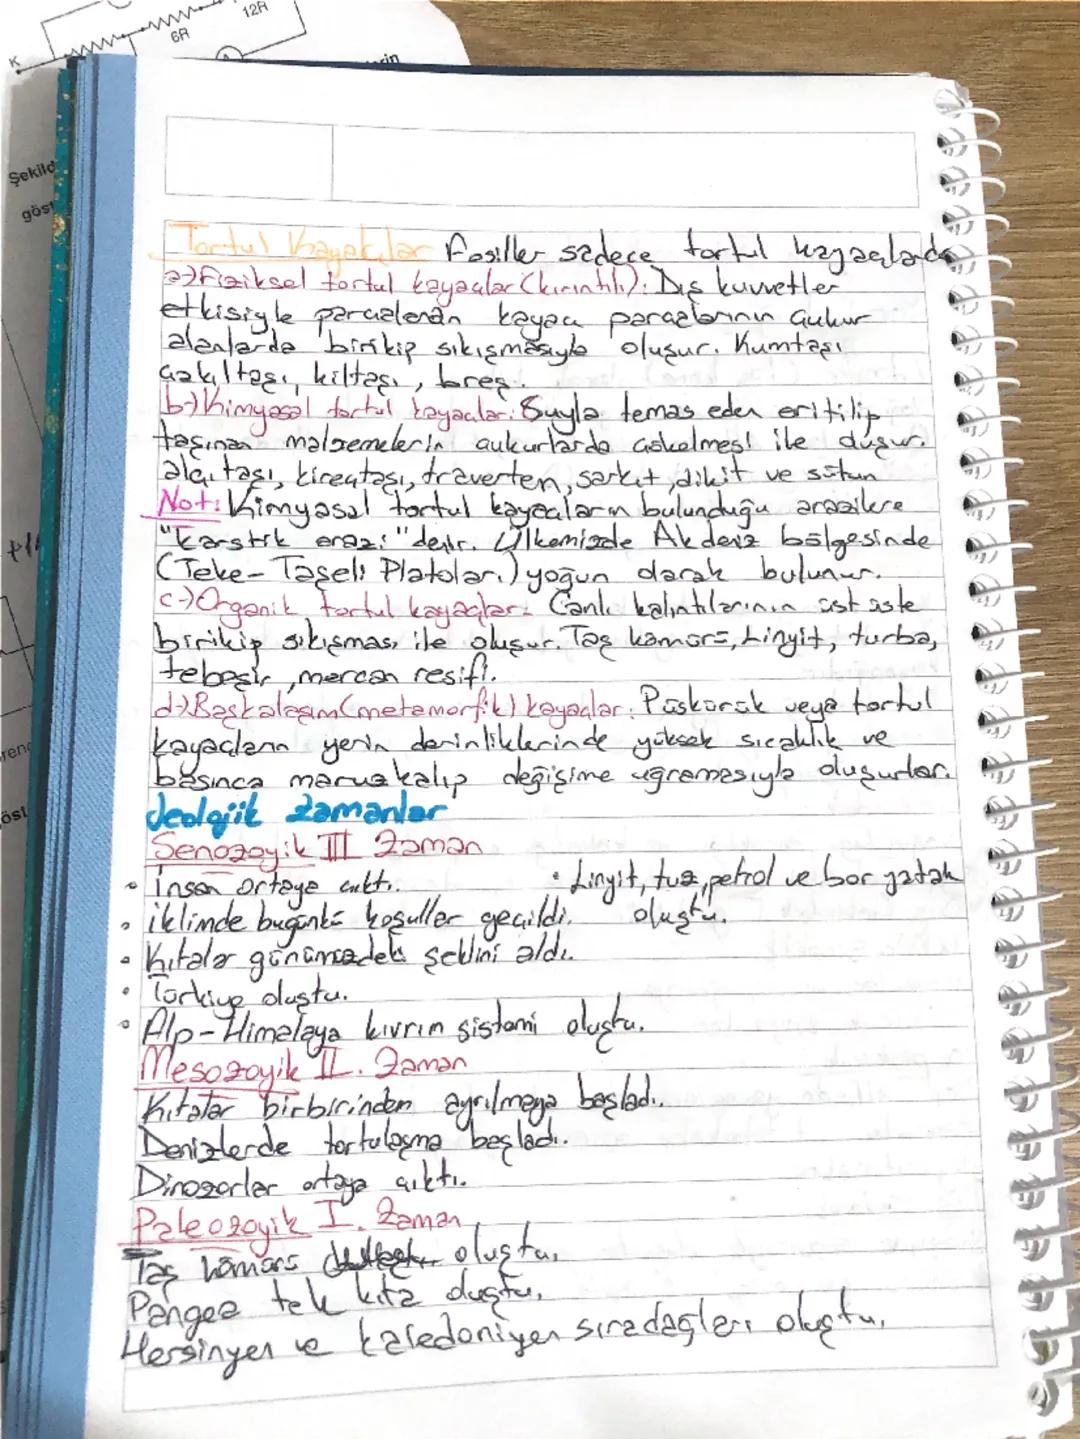 12R
6R
K
Şekild
göst
Tortul Kayaçlar Fosiller sadece tortul kayaçlarda
a→) Fiziksel tortul kayaçlar (kırıntılı): Dış kuvvetler
etkisiyle parçalanan kayaç parçalarının çukur
alanlarda birikip sıkışmasıyla oluşur. Kumtaşı
çakıltaşı, kiltaşı, breş.
b→) Kimyasal tortul kayaçlar: Suyla temas eden eritilip
taşınan malzemelerin çukurlarda çökelmesi ile oluşur.
alçıtaşı, kireçtaşı, traverten, sarkıt, dikit ve sütun
Not: Kimyasal tortul kayaçların bulunduğu arazilere
"karstik arazi" denir. Ülkemizde Akdeniz bölgesinde
(Teke-Taşeli Platoları) yoğun olarak bulunur.
c→) Organik tortul kayaçlar: Canlı kalıntılarının üst üste
birikip sıkışması ile oluşur. Taş kömürü, Linyit, turba,
tebeşir, mercan resifi.
d→) Başkalaşım (metamorfik) kayaçlar: Püskürük veya tortul
kayaçların yerin derinliklerinde yüksek sıcaklık ve
basınca maruz kalıp değişime uğramasıyla oluşurlar.
Jeolojik zamanlar
Senozoyik III Zaman
• İnsan ortaya çıktı.
• Linyit, tuz, petrol ve bor yatak
oluştu.
• iklimde bugünkü koşullar geçildi.
• Kıtalar günümüzdeki şeklini aldı.
• Türkiye oluştu.
• Alp-Himalaya kıvrım sistemi oluştu.
Mesozoyik II. Zaman
Kıtalar birbirinden ayrılmaya başladı.
Denizlerde tortulaşma başladı.
Dinozorlar ortaya çıktı.
Paleozoyik I. Zaman
Taş kömürü oluştu.
Pangea tek kıta oluştu.
Hersinyen ve kaledoniyen sıradağları oluştu.